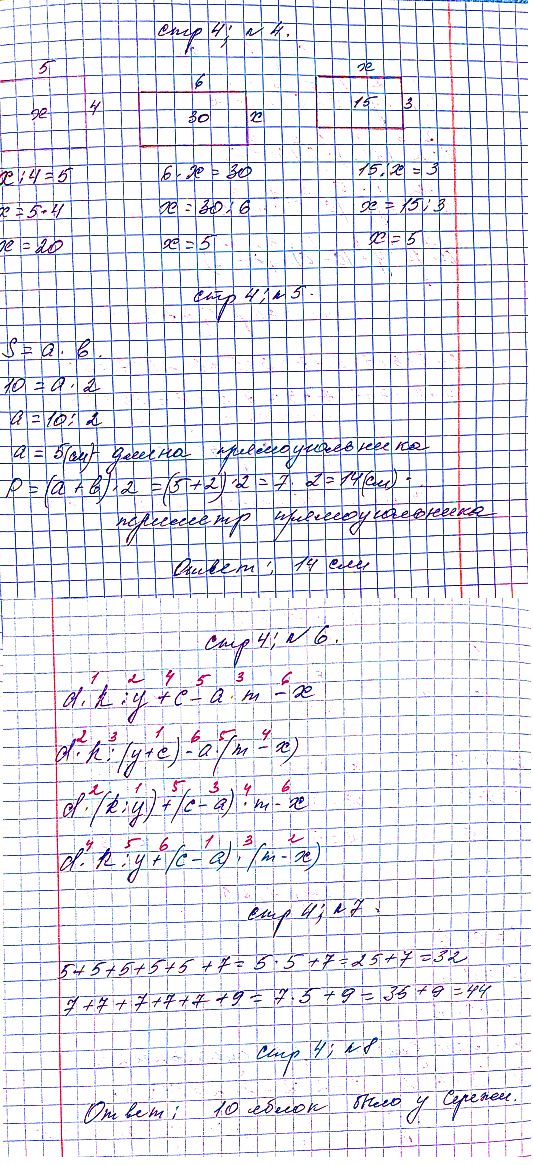 стр 4; №4.
5 6 x
x 4 30 x 15 3
x : 4 = 5 6 · x = 30 15 : x = 3
x = 5 · 4 x = 30 : 6 x = 15 : 3
x = 20 x = 5 x = 5
стр 4; №5.
S = a · b.
10 = a · 2
a = 10 : 2
a = 5 (см) - длина прямоугольника
P = (a + b) · 2 = (5 + 2) · 2 = 7 · 2 = 14 (см) -
периметр прямоугольника
Ответ: 14 см
стр 4; №6.
1 2 4 5 3 6
d · k : y + c - a · m - x
2 3 1 6 5 4
d · k : (y + c) - a · (m - x)
2 1 5 3 4 6
d · (k : y) + (c - a) · m - x
4 5 6 1 3 2
d · k : y + (c - a) · (m - x)
стр 4; №7.
5 + 5 + 5 + 5 + 5 + 7 = 5 · 5 + 7 = 25 + 7 = 32
7 + 7 + 7 + 7 + 7 + 9 = 7 · 5 + 9 = 35 + 9 = 44
стр 4; №8
Ответ: 10 яблок было у Сережи.